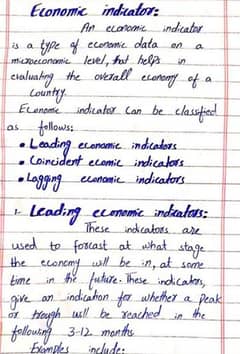 Economic indicator:
An economic indicator
is a type of economic data on a
microeconomic level, that helps in
evaluating the overall economy of a
Country.
Economic indicator can be classified
as follows:
• Leading economic indicators
• Coincident ecomic indicators
• Lagging economic indicators
1- Leading economic indicators:
These indicators are
used to forcast at what stage
the economy will be in, at some
time in the future. These indicators,
give an indication for whether a peak
or trough will be reached in the
following 3-12 months
Examples include: